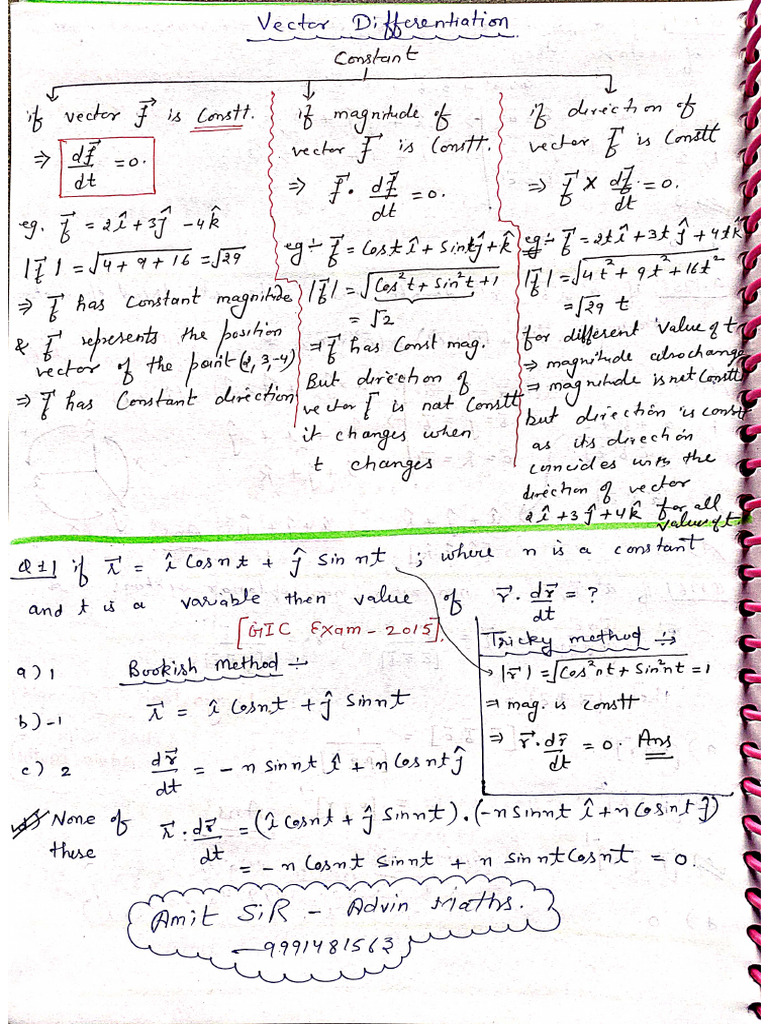 Vector Differentiation
Constant
if vector f⃗ is Constt.
⇒ df⃗/dt = 0.
eg. f⃗ = 2î + 3ĵ - 4k̂
|f⃗| = √4 + 9 + 16 = √29
⇒ f⃗ has Constant magnitude
& f⃗ represents the position
vector of the point (2, 3, -4)
⇒ f⃗ has Constant direction
if magnitude of
vector f⃗ is Constt.
⇒ f⃗ · df⃗/dt = 0.
eg:- f⃗ = Cost î + Sint ĵ + k̂
|f⃗| = √Cos²t + Sin²t + 1
= √2
⇒ f⃗ has Const mag.
But direction of
vector f⃗ is not Constt
it changes when
t changes
if direction of
vector f⃗ is Constt
⇒ f⃗ × df⃗/dt = 0.
eg:- f⃗ = 2t î + 3t ĵ + 4t k̂
|f⃗| = √4t² + 9t² + 16t²
= √29 t
for different value of t
⇒ magnitude also change
⇒ magnitude is not Constt
but direction is constt
as its direction
coincides with the
direction of vector
2î + 3ĵ + 4k̂ for all
value of t.
Q#1 if r⃗ = î Cosnt + ĵ Sin nt ; where n is a constant
and t is a variable then value of r⃗ · dr⃗/dt = ?
[GIC Exam - 2015].
a) 1
b) -1
c) 2
d) None of
these
Bookish Method :-
r⃗ = î Cosnt + ĵ Sinnt
dr⃗/dt = - n Sinnt î + n Cosnt ĵ
r⃗ · dr⃗/dt = (î Cosnt + ĵ Sinnt) · (-n Sinnt î + n Cosint ĵ)
= - n Cosnt Sinnt + n Sin nt Cosnt = 0.
Tricky method :-
|r⃗| = √Cos²nt + Sin²nt = 1
⇒ mag. is constt
⇒ r⃗ · dr⃗/dt = 0. Ans
Amit SiR - Advin Maths.
- 9991481563